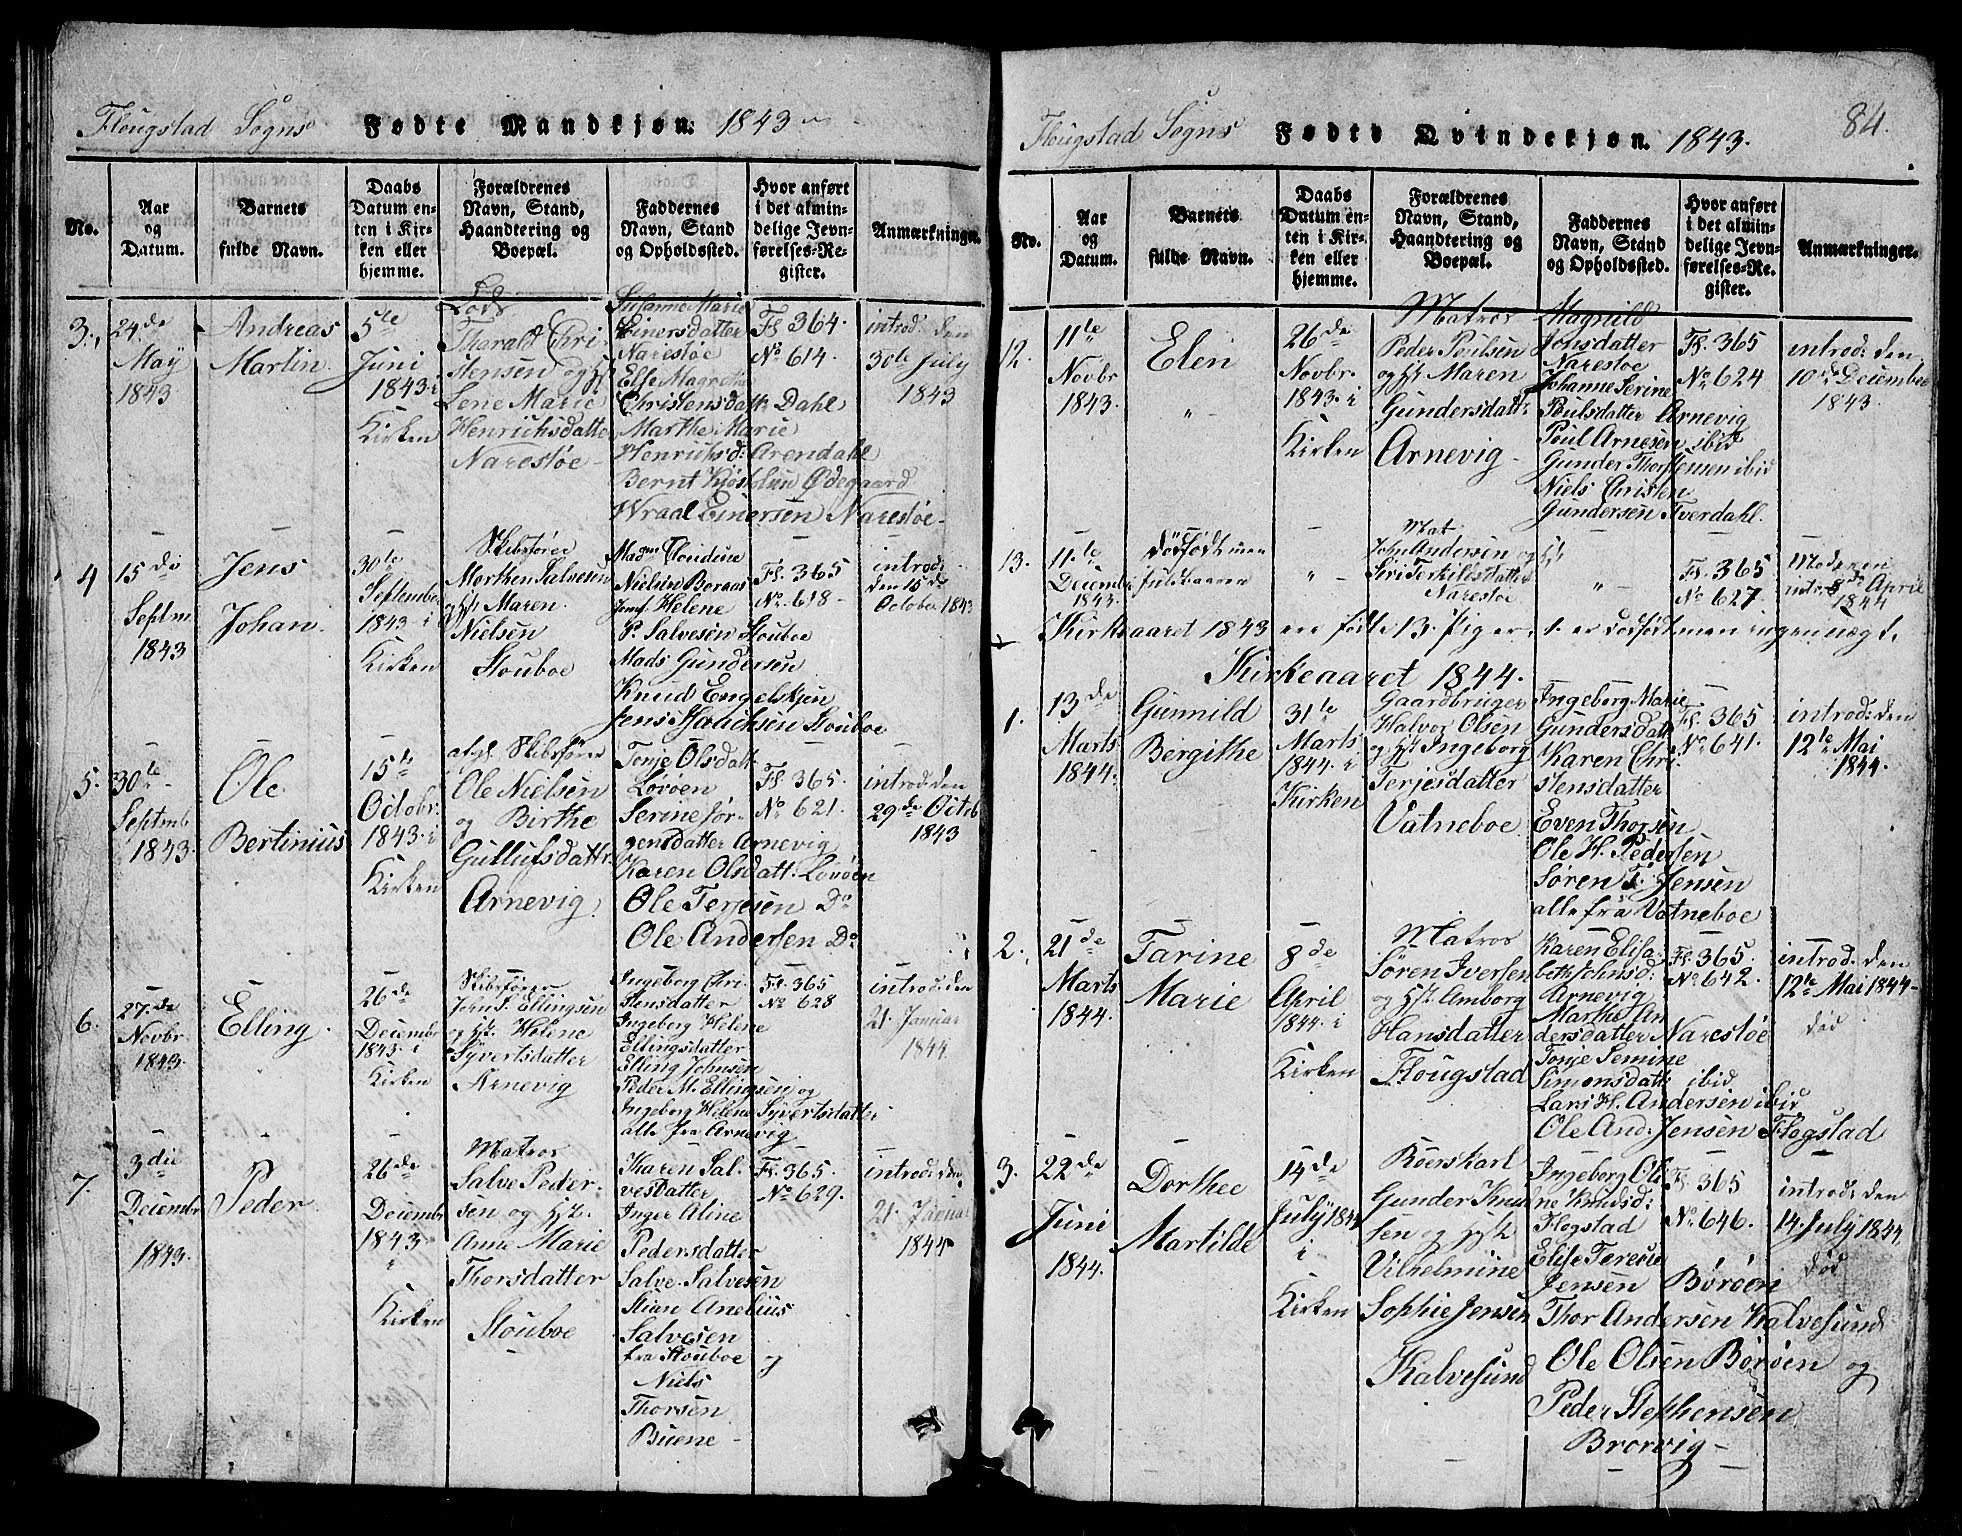 Flougstad Sogns Fødte Mandkjøn. 1843
No.
Aar
og
Datum.
Barnets
fulde Navn.
Daabs
Datum en-
ten i Kir-
ken eller
hjemme.
Forældrenes
Navn, Stand,
Haandtering og
Boepæl.
Faddernes
Navn, Stand
og Opholdssted.
Hvor anført
i det almin-
delige Jevn-
førelses-Re-
gister.
Anmærkninger.
3.
24de
May
1843
Andreas
Martin
5te
Juni
1843 i
Kirken
Lods
Tharald Chri-
stensen og Hst
Lene Marie
Henrichsdatter
Narestøe
Susanne Marie
Einersdatter
Narestøe
Else Magrethe
Christensdatt: Dahl
Marthe Marie
Henrichsd: Arendahl
Bernt Kjøstolsen Ødegaard
Wraal Einersen Narestøe
Fl. 364.
No 614.
introd: den
30te July
1843
4
15de
Septm
1843
Jens
Johan.
30te
September
1843 i
Kirken
Skibsfører
Morthen Salvesen
og Hst Maren
Nielsen
Stouboe
Madme
Nielsen Boraas
Jomf. Helene
P. Salvesen Stouboe
Mads Gundersen
Knud Engelskjøn
Jens Stouboe
Fl. 365
No 618
introd:
den 15de
October 1843
5.
30te
Septmb
1843.
Ole
Bertinius
15de
Octobr.
1843 i
Kirken
afgl. Skibsfører
Ole Nielsen
og Birthe
Gullufsdattr.
Arnevig
Tonje Olsdatt.
Lovøen
Serine Jør-
gensdatter Arnevig
Karen Olsdatt: Lovøen
Ole Terjesen Do
Ole Andersen Do
Fl. 365.
No 621.
introd: den
29de Octb
1843
6.
27.de
Novbr
1843.
Elling.
26de
Decembr
1843. i
Kirken
Skibsfører
John S. Ellingsen
og Hst. Helene
Syvertsdatter
Arnevig
Ingeborg Chri-
stensdatter
Ingeborg Helene
Ellingsdatter
Elling Johnsen
Peder M. Ellingsen og
Ingeborg Helene Syvertsdatter
alle fra Arnevig
Fl. 365
No 628
introd: den
21. Januar
1844.
7.
3die
Decembr
1843.
Peder.
26de
Decembr
1843
i
Kirken
Matros
Salve Peder-
sen og Hst.
Anne Marie
Thorsdatter
Stouboe
Karen Sal-
vesdatter
Inger Aline
Pedersdatter
Salve Salvesen
Stian Anelius
Salvesen
fra Stouboe og
Niels
Thorsen
Buene
Fl. 365.
No 629.
introd: den
21. Januar
1844
Flougstad Sogns Fødte Qvindekjøn. 1843.
84.
No.
Aar
og
Datum.
Barnets
fulde Navn.
Daabs
Datum en-
ten i Kir-
ken eller
hjemme.
Forældrenes
Navn, Stand,
Haandtering og
Boepæl.
Faddernes
Navn, Stand
og Opholdssted.
Hvor anført
i det almin-
delige Jevn-
førelses-Re-
gister.
Anmærkninger.
12.
11te
Novbr
1843.
Elen
26de
Novbr.
1843. i
Kirken
Matros
Peder Poulsen
og Hst Maren
Gundersdattr
Arnevig
Magnild
Johsdatter
Narestoe
Johanne Serine
Poulsdatter Arnevig
Poul Arnesen ibid
Gunder Thorstensen ibid
Niels Christen
Gundersen Tverdahl.
Fl. 365
No 624
introd: den
10de December
1843.
13.
11te
Decembr
1843.
Dødfødt men
fuldbaaren
Mat
John Andersen og Hst
Siri Terkildsdatter
Narestøe
Fl. 365
No 627.
Moderen
intr: 8de April
1844
Kirkeaaret 1843 ere født 13. Piger, 1. er dødfødt men ingen uægt.
Kirkeaaret 1844.
1.
13de
Marts
1844.
Gunnild
Bergithe
31te
Marts
1844. i
Kirken
Gaardbruger
Halvor Olsen
og Hst Ingeborg
Terjesdatter
Vatneboe.
Ingeborg Marie
Gundersdatt
Karen Chri-
stensdatter
Even Thorsen
Ole H. Pedersen
Søren S. Jensen
alle fra Vatneboe
Fl. 365
No 641.
introd: den
12te Mai
1844.
2.
21de
Marts
1844.
Tarine
Marie
8de
April
1844. i
Kirken
Matros
Søren Iversen
og Hst. Amborg
Hansdatter
Flougstad
Karen Elisa-
beth Johnsd:
Arnevig
Marthe An-
dersdatter Narestøe
Tonje Semine
Simonsdatt: ibid
Lars H. Andersen ibid
Ole And: Jensen Flogstad
Fl. 365.
No 642.
introd: den
12te Mai 1844
død
3.
22de
Juni
1844.
Dorthee
Martilde
14de
July 1844
i
Kirken
Røerskarl
Gunder Knud-
sen og Hst
Vilhelmine
Sophie Jensen
Kalvesund
Ingeborg Oli-
ne Knudsd:
Flogstad
Elise Terese
Jensen Børøen
Thor Andersen Kalvesund
Ole Olsen Børøen og
Peder Stephensen
Brorvig
Fl. 365
No 646.
introd: den
14. July 1844.
død